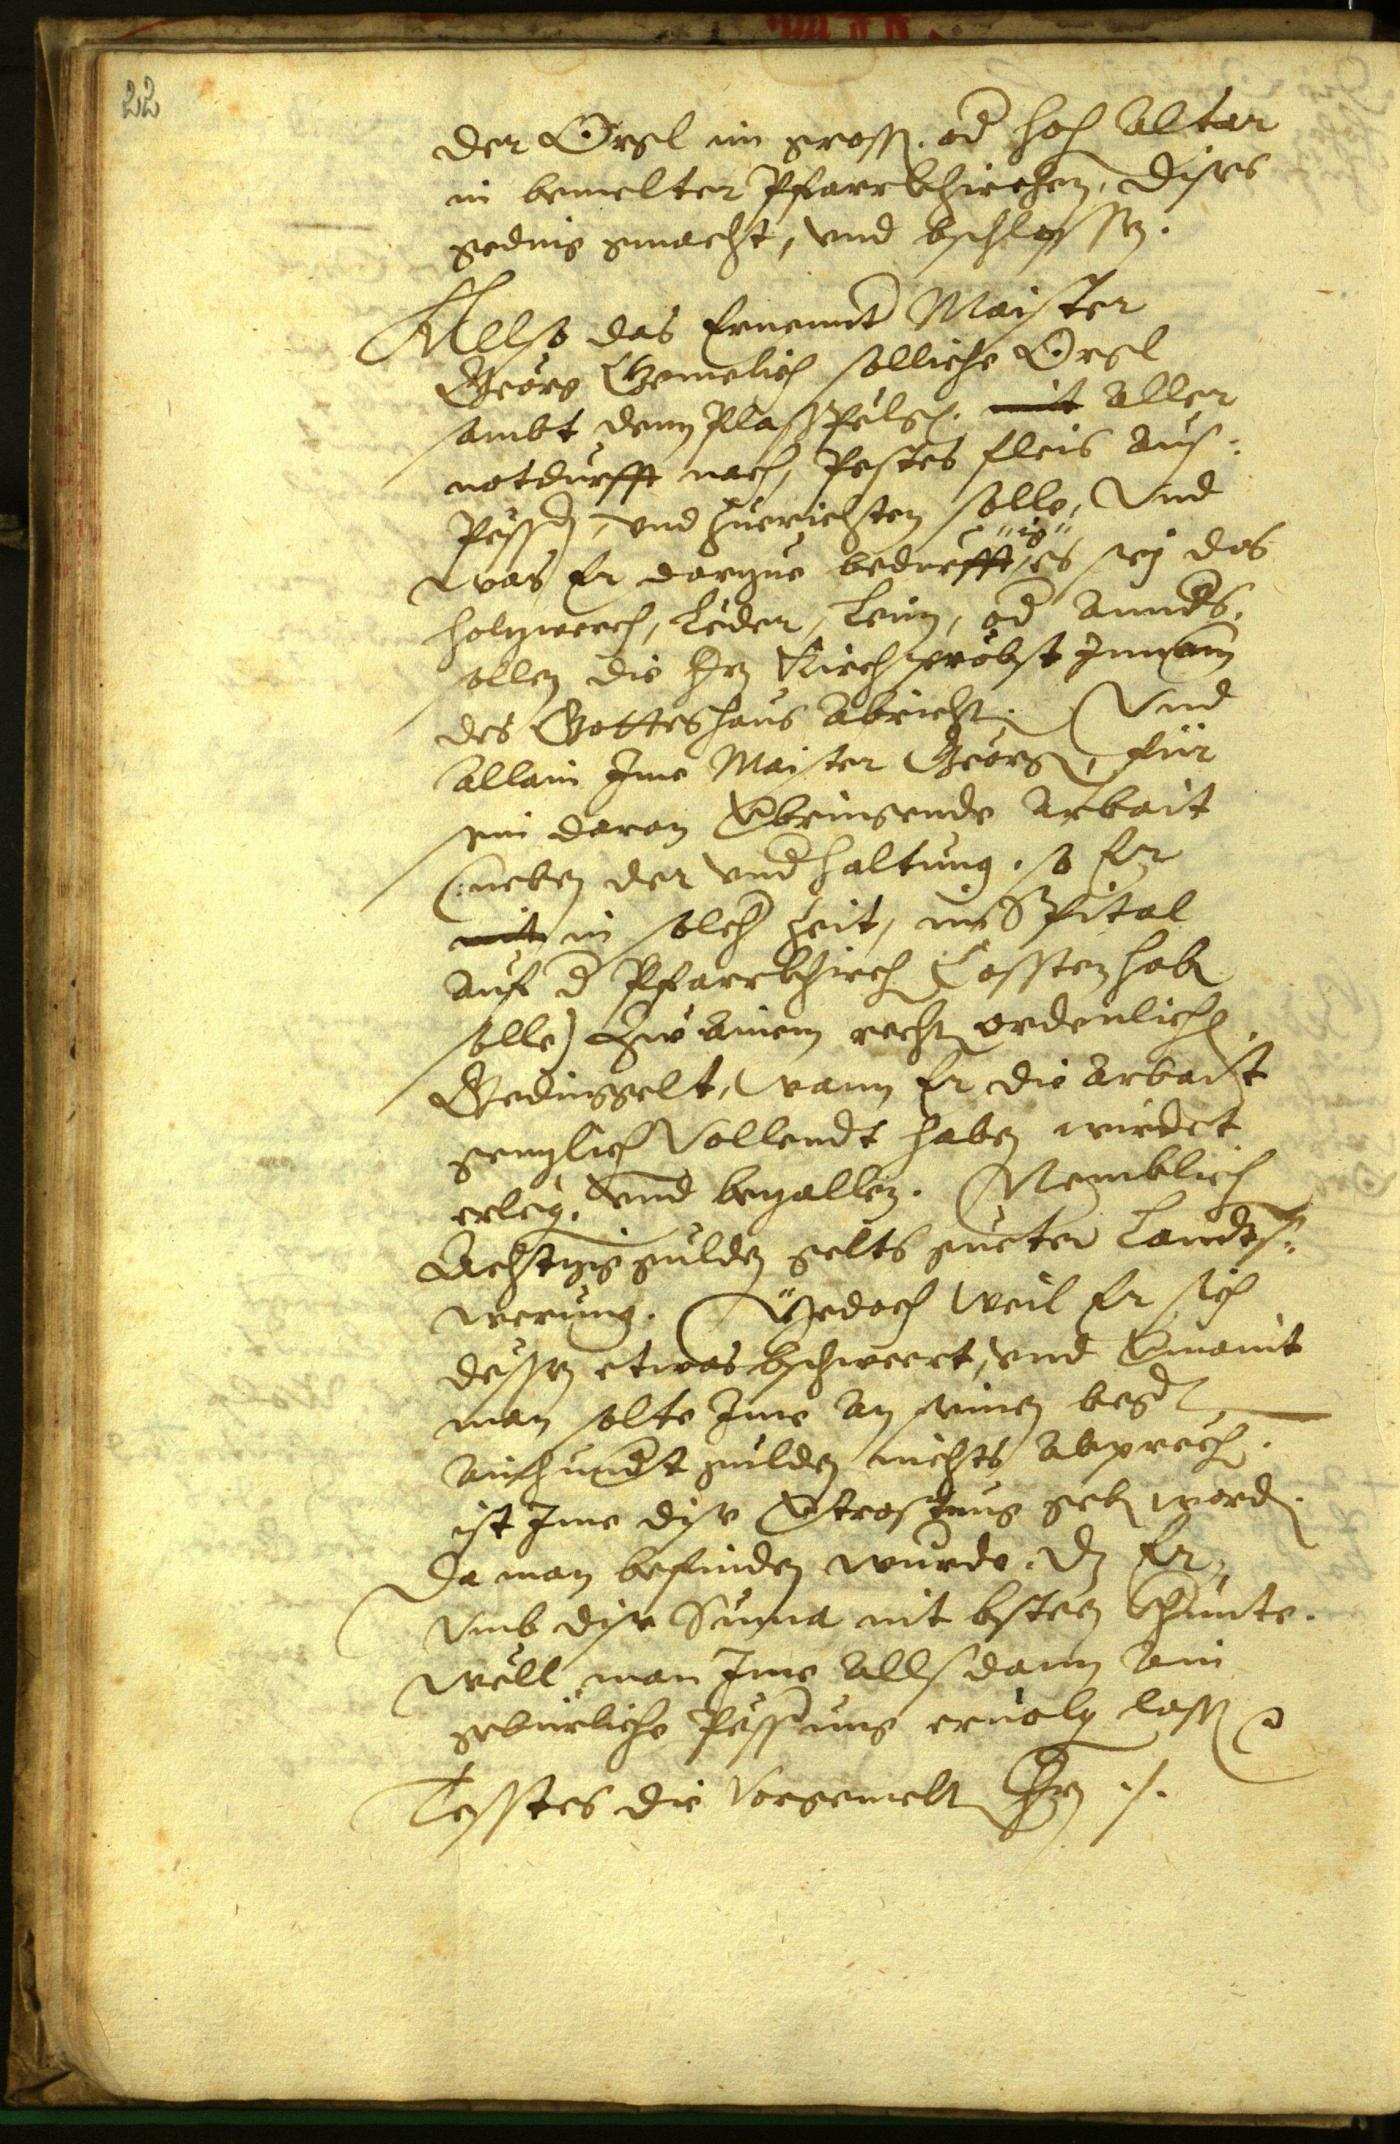 22
der Orgl im gross. od hoch Altar
in bemelter Pfarrkhirchen, dises
geding gmacht, und bschlossen.
Allso das Ernennt Maister
Geörg Gemelich solliche Orgl
sambt denn Plaßpelg. mit aller
notdurfft nach, Pestes fleis aus-
Pessern, und zuerichten solle, Und
was Er darzue bedurfftig, es sey das
holzwerch, Leder, Leim, od annders,
sollen die Hrn Kirchpröbst Innam
des Gotteshaus abricht. Und
allain Ime Maister Geörgn, für
sein daran Verbringende Arbait
(: neben der underhaltung. so Er
mit in solcher Zeit, im Spital
auf d Pfarrkhirch Cossten hab
solle) Zu ainem recht ordenlich
Gedinggelt, wann Er die Arbait
genzlich Vollendt haben wirdet
erleg. und bezallen. Nemblich
Achtzig gulden gelts gueter Lands-
werung. Yedoch weil Er sich
dessen etwas bschwert, und Vermaint
man solte Ime an seinen begern
ainhundert gulden nichts abprech.
ist Ime dise Vertrostung geben word.
Da man befinden wurde. dz Er,
umb dise Suma nit bsteen khünte.
well man Ime allsdann ain
gebürliche Pesserung ervolg lass
Testes die Vorgemelt Hrn ./.